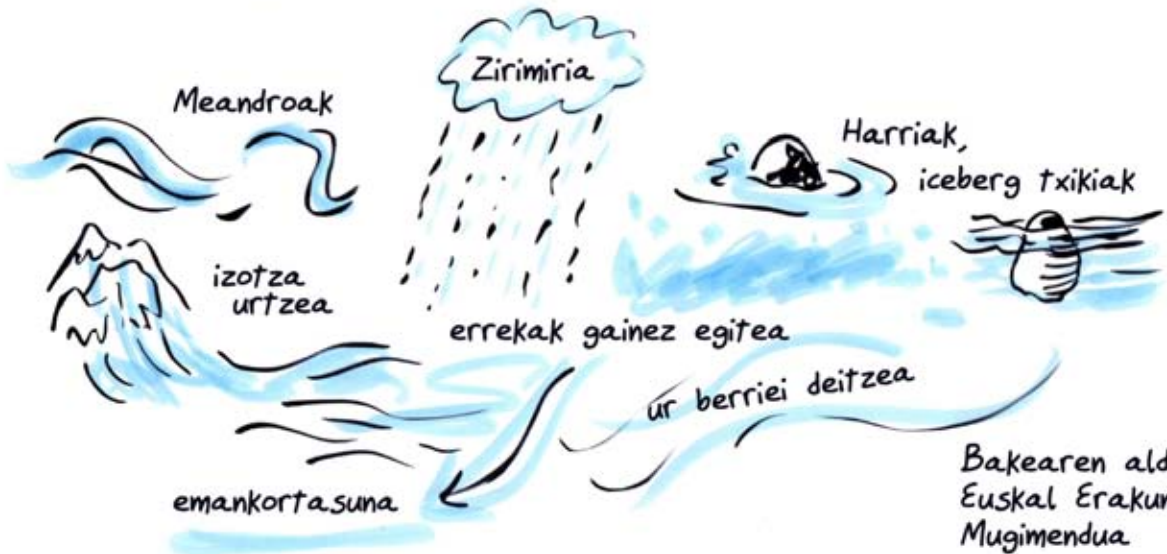 Zirimiria
Meandroak
Harriak,
iceberg txikiak
izotza
urtzea
errekak gainez egitea
ur berriei deitzea
emankortasuna
Bakearen ald
Euskal Erakun
Mugimendua